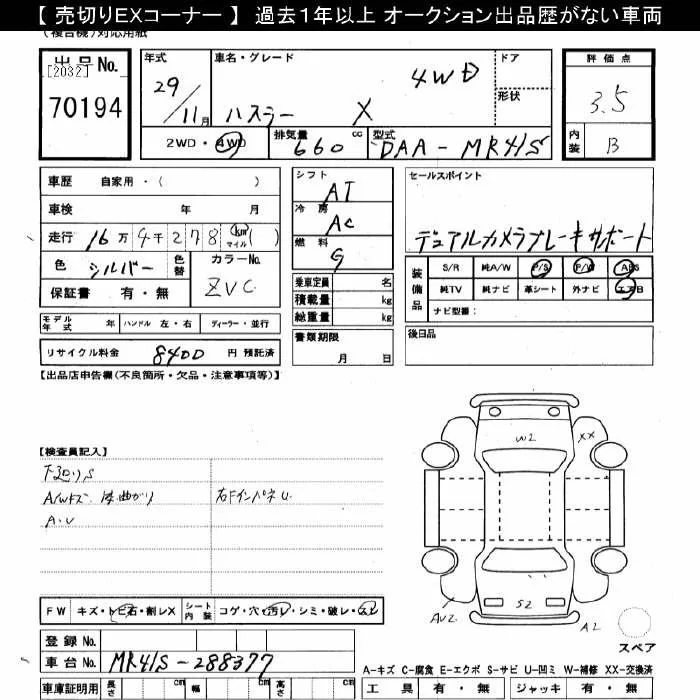 【 売切りEXコーナー 】 過去１年以上 オークション出品歴がない車両
(複合機)対応用紙
出品No. [2032] 70194
年式 29/11月
車名・グレード ハスラー X 4WD
ドア
形状
評価点 3.5
内装 B
2WD・4WD
排気量 660 cc
型式 DAA-MR41S
車歴 自家用・( )
車検 年 月
走行 16万4千278 km マイル ( )
色 シルバー 色替
カラーNo. ZVC
保証書 有・無
シフト AT
冷房 AC
燃料 G
乗車定員 名
積載量 kg
総重量 kg
セールスポイント
デュアルカメラブレーキサポート
装備品
S/R 純A/W P/S P/W ABS
純TV 純ナビ 革シート 外ナビ エアB
ナビ型番：
モデル年式 年 ハンドル 左・右 ディーラー・並行
書類期限 月 日
後日品
リサイクル料金 8400 円 預託済
【出品店申告欄(不良箇所・欠品・注意事項等)】
【検査員記入】
下廻りS
A/Wキズ 曲がり
右FインパネU
A・U
W2
XX
S2
AU2
A2
スペア
FW キズ・トビ石・割レX
シート内装 コゲ・穴・汚レ・シミ・破レ・スレ
登録No.
車台No. MR41S-288377
車庫証明用 長さ cm 幅 cm 高さ cm
A-キズ C-腐食 E-エクボ S-サビ U-凹ミ W-補修 XX-交換済
工具 有・無 ジャッキ 有・無